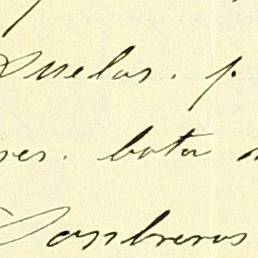 Suelas. p.
res. bota
Sombreros